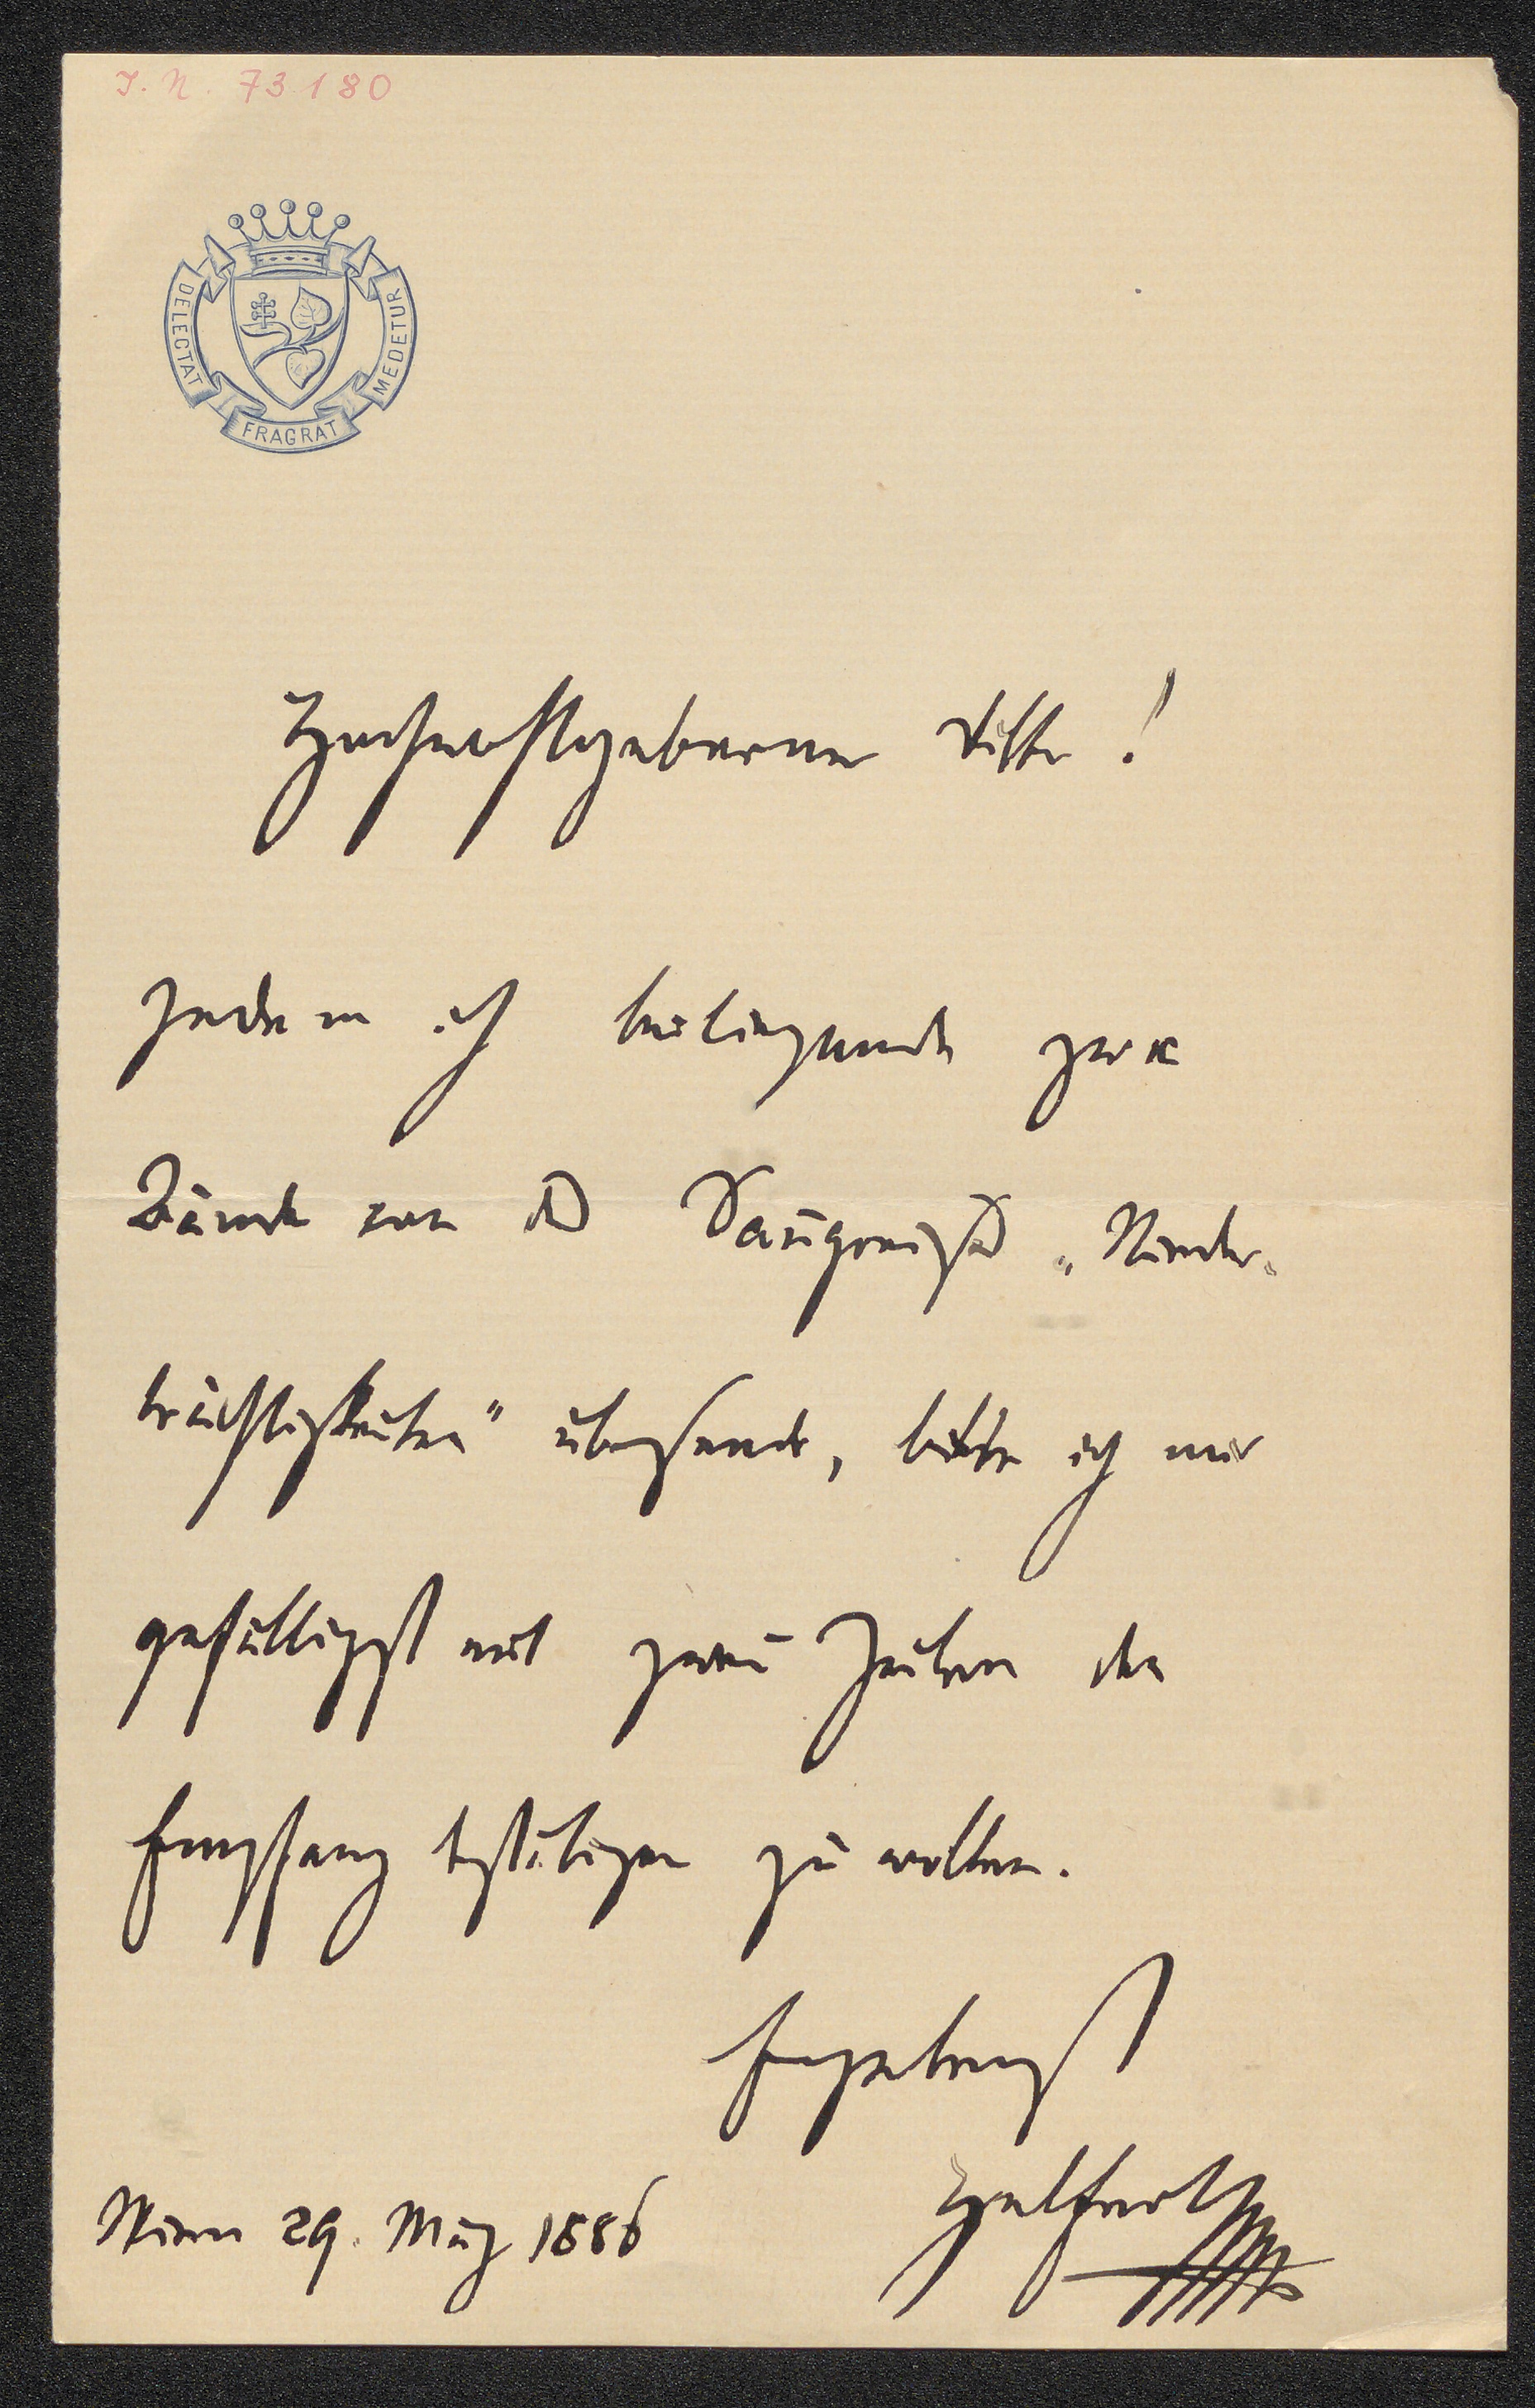 I. N. 73180
DELECTAT
FRAGRAT
MEDETUR
Hochwohlgeborner Ritter!
Indem ich beiliegende zwei
Bände von
trächtigkeiten" übersende, bitte ich mir
gefälligst mit zwei Zeilen den
Empfang bestätigen zu wollen.
Ergebenst
Helfert
Wien 29. März 1886